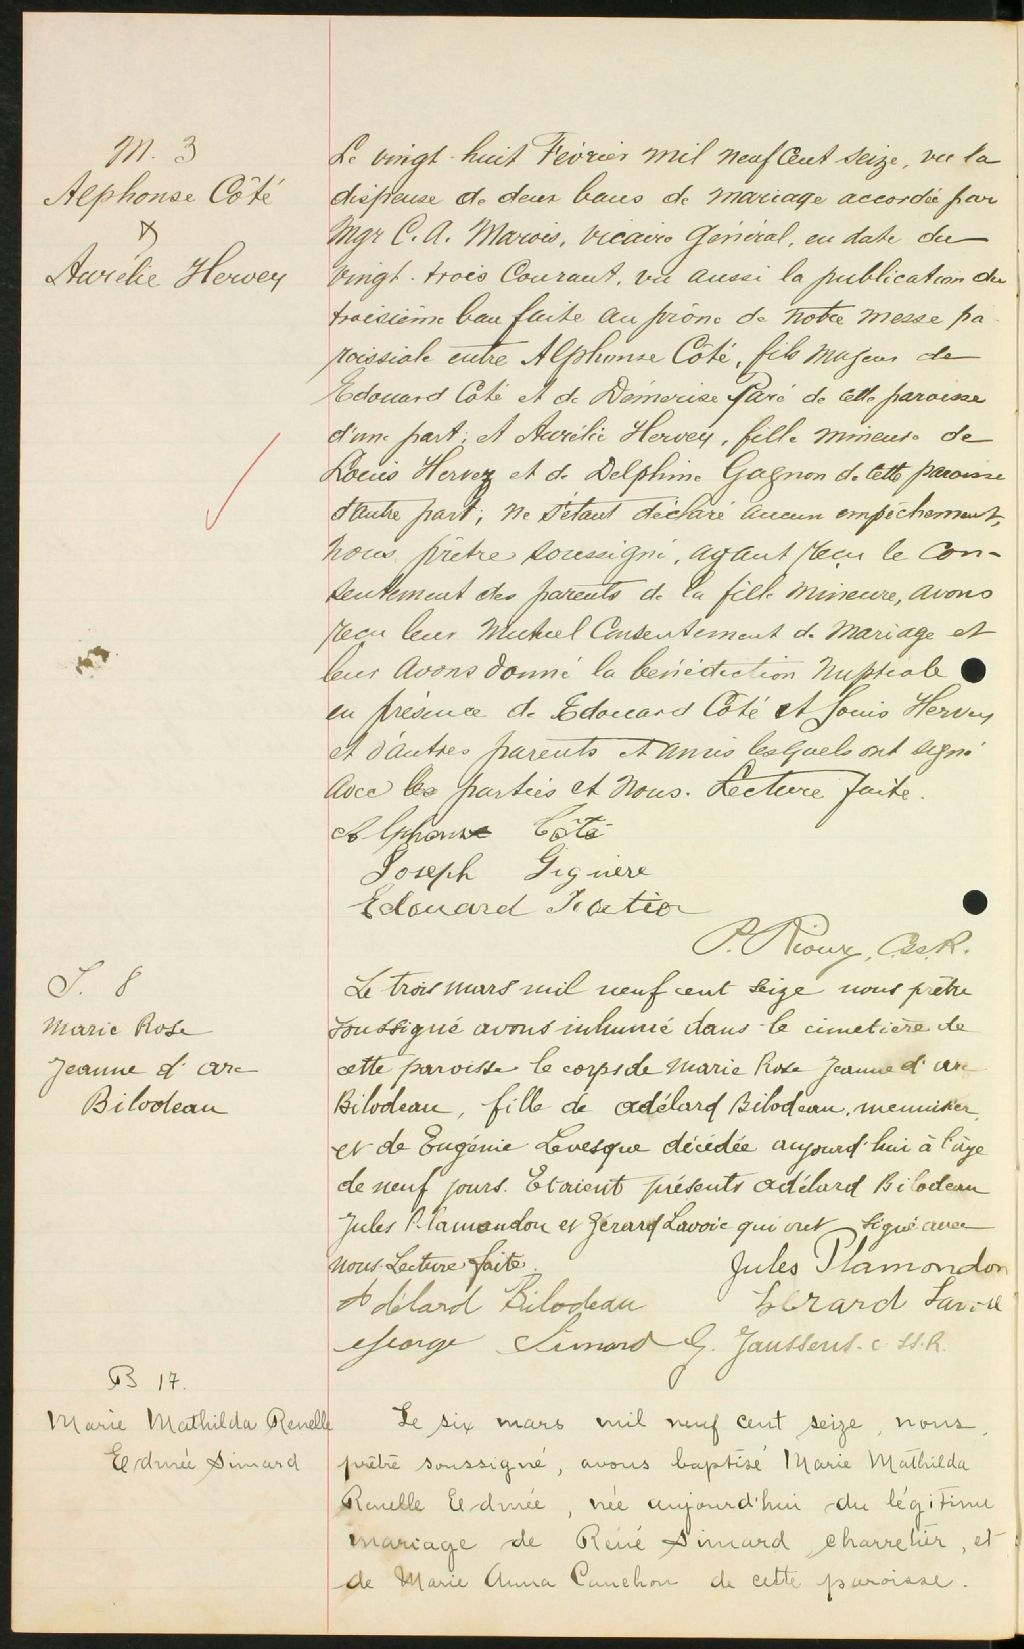 M. 3
Alphonse Côté
&
Aurélie Hervey
Le vingt-huit Février mil neuf Cent seize, vu la
dispense de deux bans de mariage accordée par
Mgr C. A. Marois, vicaire Général, en date du
vingt-trois Courant, vu aussi la publication du
troisième ban faite au prône de notre messe pa-
roissiale entre Alphonse Côté, fils majeur de
Edouard Côté et de Démerise Paré de cette paroisse
d'une part; et Aurélie Hervey, fille mineure de
Louis Hervey et de Delphine Gagnon de cette paroisse
d'autre part; ne s'étant déclaré aucun empêchement,
nous, prêtre soussigné, ayant reçu le con-
sentement des parents de la fille mineure, avons
reçu leur mutuel Consentement de mariage et
leur avons donné la bénédiction nuptiale
en présence de Edouard Côté et Louis Hervey
et d'autres parents et amis lesquels ont signé
avec les parties et nous. Lecture faite.
Alphonse Côté
Joseph Giguère
Edouard
P. Rioux, C.Ss.R.
S. 8
Marie Rose
Jeanne d'arc
Bilodeau
Le trois mars mil neuf cent seize nous prêtre
soussigné avons inhumé dans le cimetière de
cette paroisse le corps de Marie Rose Jeanne d'arc
Bilodeau, fille de adélard Bilodeau, menuisier,
et de Eugénie Levesque décédée aujourd'hui à l'âge
de neuf jours. Etaient présents adélard Bilodeau
Jules Plamondon et Gérard Lavoie qui ont signé avec
nous. Lecture faite.
Jules Plamondon
Adélard Bilodeau Gérard Lavoie
George Simard G. Janssens. c. ss. R.
B 17.
Marie Mathilda Renelle
Edmée Simard
Le six mars mil neuf cent seize, nous,
prêtre soussigné, avons baptisé Marie Mathilda
Renelle Edmée, née aujourd'hui du légitime
mariage de René Simard, charretier, et
de Marie Anna Cauchon de cette paroisse.